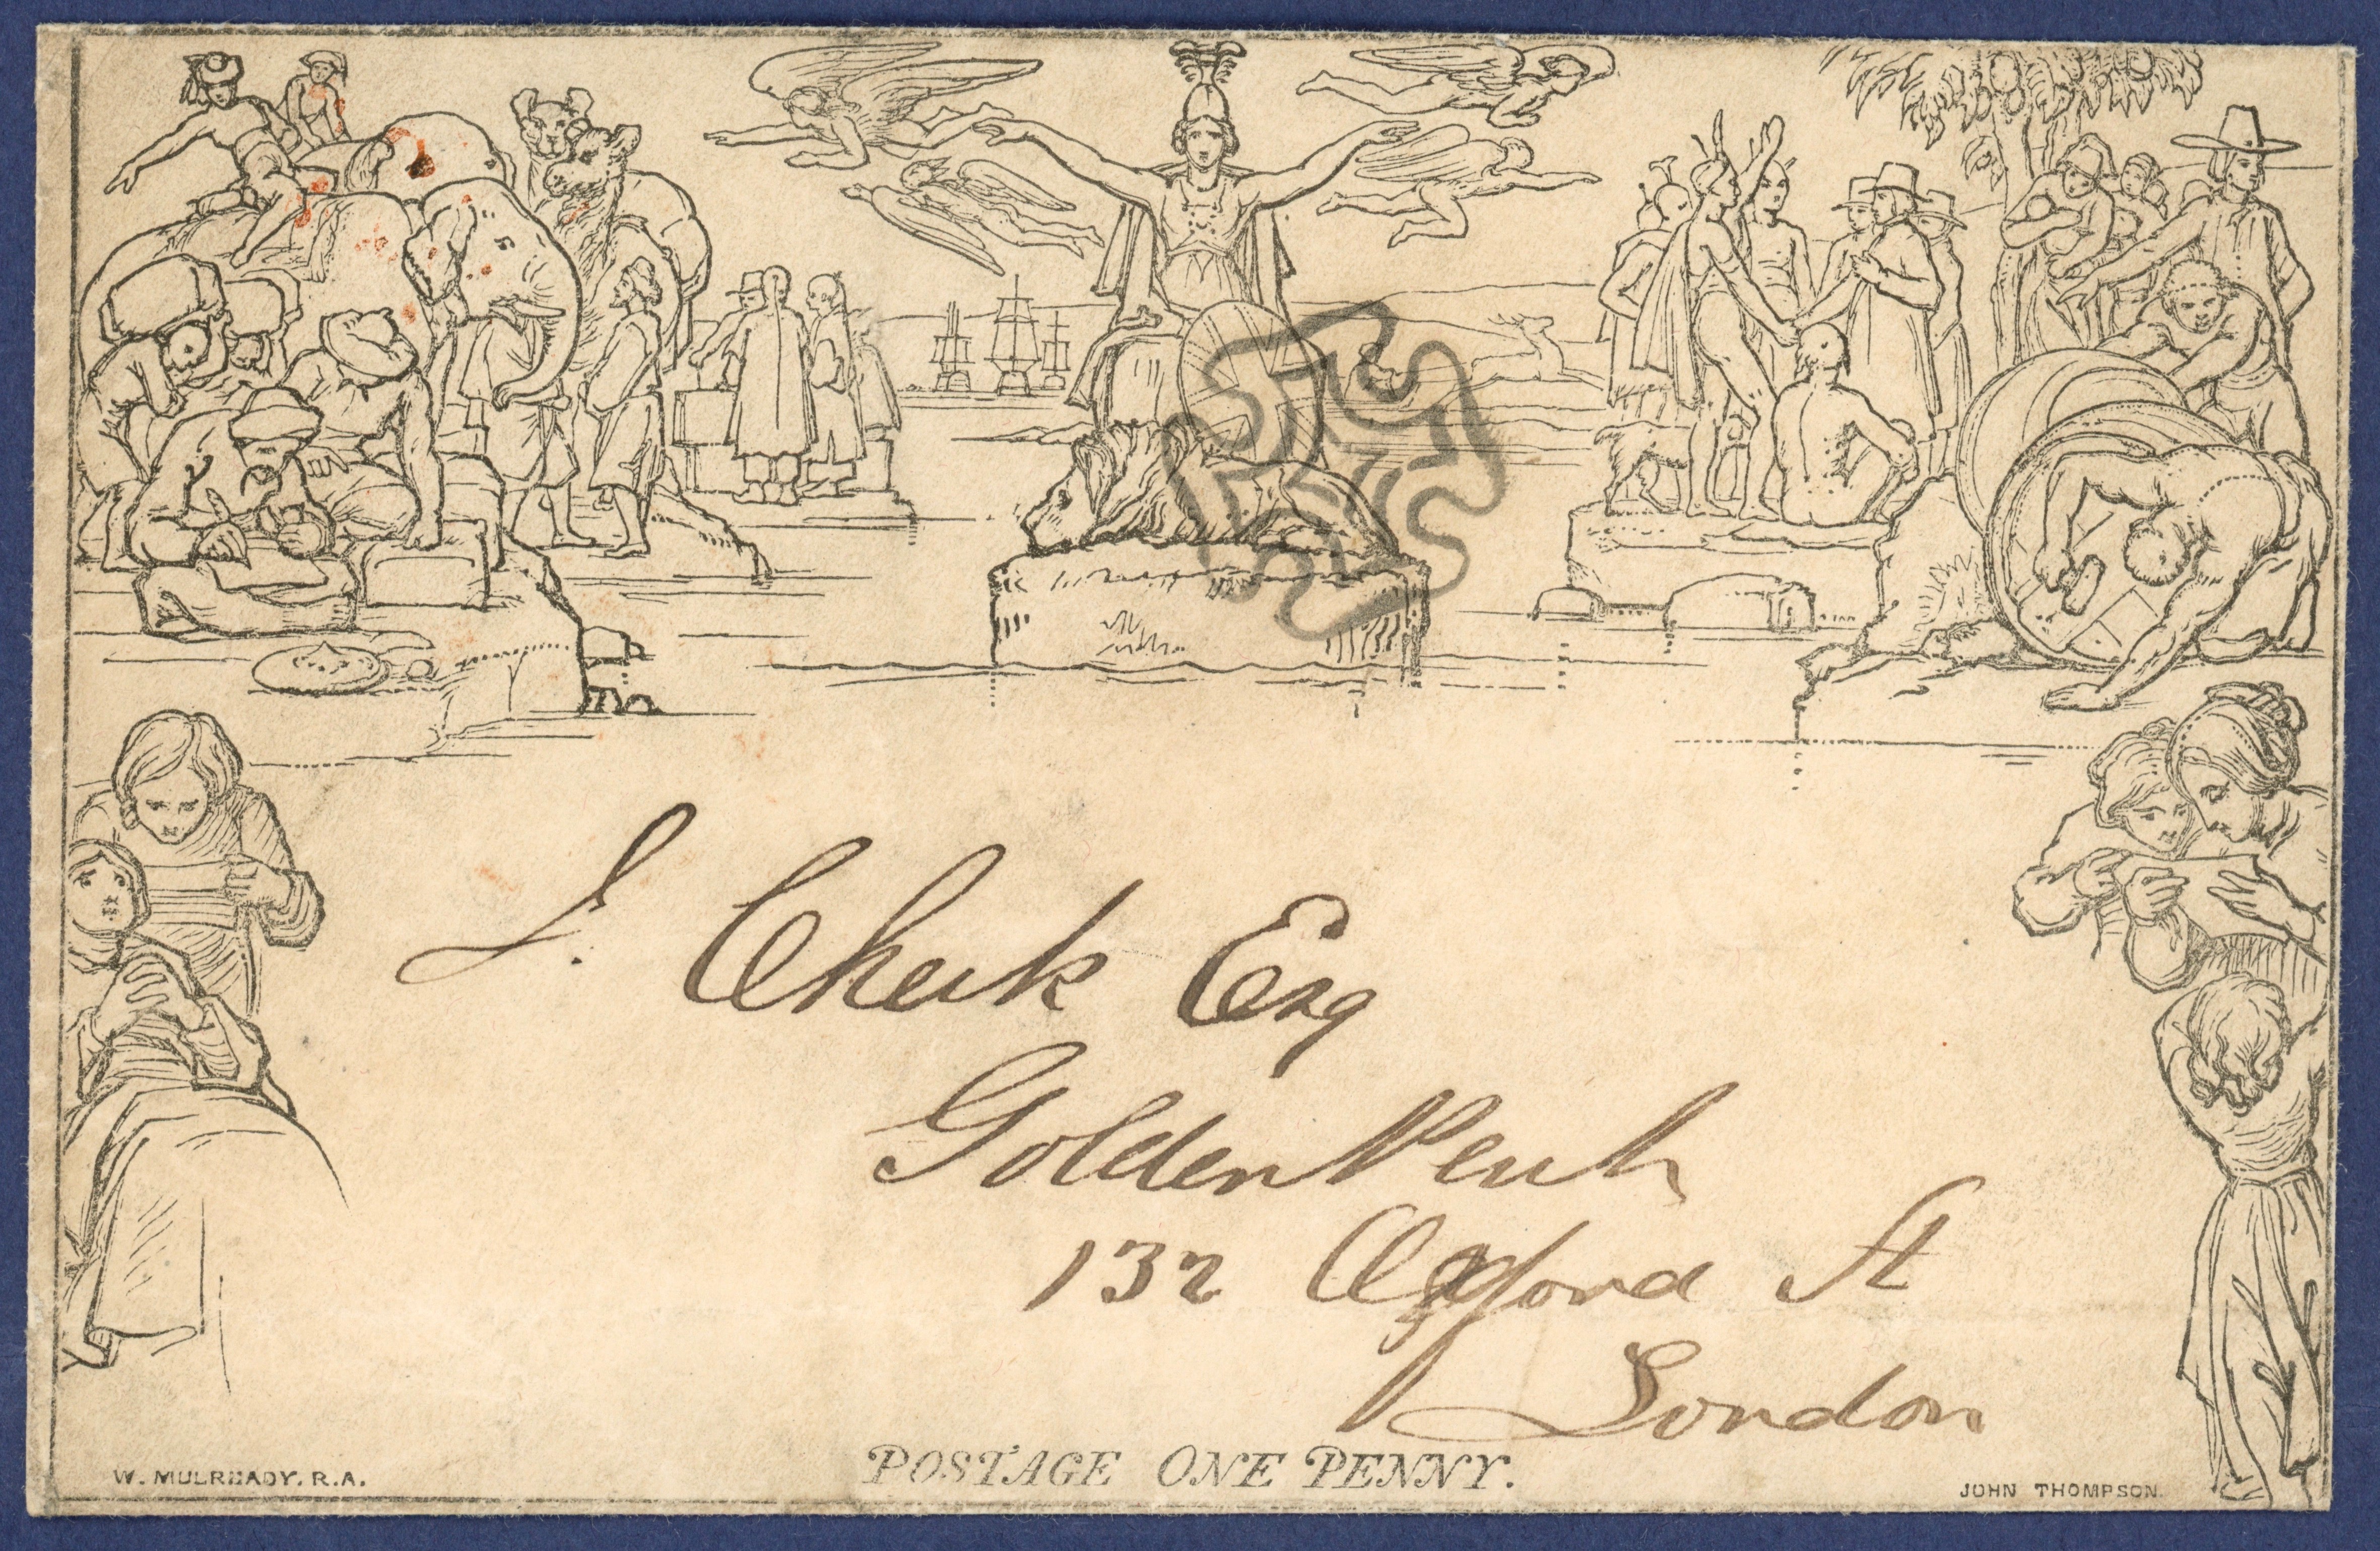 J. Cheek Esq
Golden Perch
132 Oxford St
London
W. MULREADY. R.A.
POSTAGE ONE PENNY.
JOHN THOMPSON.